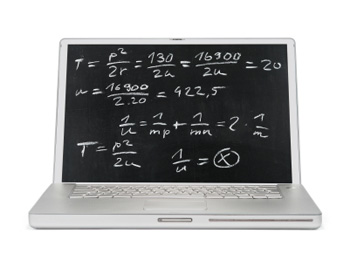 T = p²/2r = 130/2u = 16900/2u = 20
u = 16900/2.20 = 422,5
1/u = 1/mp + 1/mn = 2 · 1/m
T = p²/2u
1/u = ⓧ